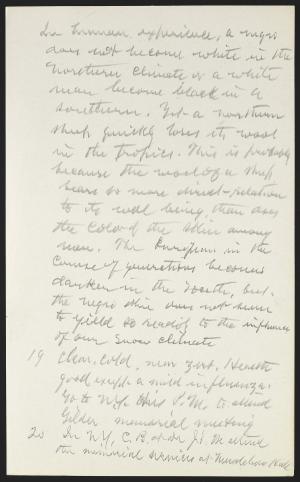 In human experience, a negro
does not become white in the
Northern climate or a white
man become black in a
southern. Yet a northern
sheep quickly loses its wool
in the tropics. This is probably
because the wool of a sheep
bears so more direct relation
to its well being, than does
the color of the skin among
men. The European in the
course of generations becomes
darker in the South, but
the negro skin does not seem
to yield so readily to the influence
of our Snow climate
19 Clear, cold, near zero. Health
good except a mild influenza.
Go to N.Y. this P.M. to attend
Gilder memorial meeting
20 In N.Y., C. B. at Dr J's. We attend
the memorial services at Mendelssohn Hall